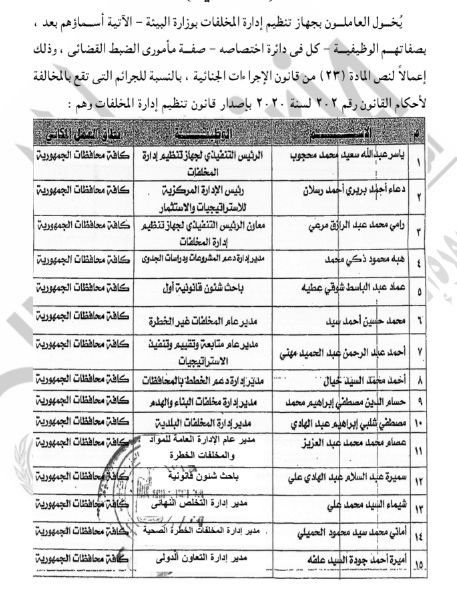 يُخول العاملون بجهاز تنظيم إدارة المخلفات بوزارة البيئة - الآتية أسماؤهم بعد ،
بصفاتهم الوظيفية - كل فى دائرة اختصاصه - صفة مأمورى الضبط القضائى ، وذلك
إعمالًا لنص المادة (٢٣) من قانون الإجراءات الجنائية ، بالنسبة للجرائم التى تقع بالمخالفة
لأحكام القانون رقم ٢٠٢ لسنة ٢٠٢٠ بإصدار قانون تنظيم إدارة المخلفات وهم :
م الاســـم الوظيفة نطاق العمل المكاني
١ ياسر عبدالله سعيد محمد محجوب الرئيس التنفيذي لجهاز تنظيم إدارة المخلفات كافة محافظات الجمهورية
٢ دعاء أحمد بريري أحمد رسلان رئيس الإدارة المركزية للاستراتيجيات والاستثمار كافة محافظات الجمهورية
٣ رامي محمد عبد الرازق مرعي معاون الرئيس التنفيذي لجهاز تنظيم إدارة المخلفات كافة محافظات الجمهورية
٤ هبه محمود ذكي محمد مدير إدارة دعم المشروعات ودراسات الجدوى كافة محافظات الجمهورية
٥ عماد عبد الباسط شوقي عطيه باحث شئون قانونية أول كافة محافظات الجمهورية
٦ محمد حسين أحمد سيد مدير عام المخلفات غير الخطرة كافة محافظات الجمهورية
٧ أحمد عبد الرحمن عبد الحميد مهني مدير عام متابعة وتقييم وتنفيذ الاستراتيجيات كافة محافظات الجمهورية
٨ أحمد محمد السيد خيال مدير إدارة دعم الخطط بالمحافظات كافة محافظات الجمهورية
٩ حسام الدين مصطفي إبراهيم محمد مدير إدارة مخلفات البناء والهدم كافة محافظات الجمهورية
١٠ مصطفي شلبي إبراهيم عبد الهادي مدير إدارة المخلفات البلدية كافة محافظات الجمهورية
١١ عصام محمد محمد عبد العزيز مدير عام الإدارة العامة للمواد والمخلفات الخطرة كافة محافظات الجمهورية
١٢ سميرة عبد السلام عبد الهادي علي باحث شئون قانونية كافة محافظات الجمهورية
١٣ شيماء السيد محمد علي مدير إدارة التخلص النهائى كافة محافظات الجمهورية
١٤ أماني محمد سيد محمود الحميلي مدير إدارة المخلفات الخطرة الصحية كافة محافظات الجمهورية
١٥ أميرة أحمد جودة السيد مدير إدارة التعاون الدولى كافة محافظات الجمهورية